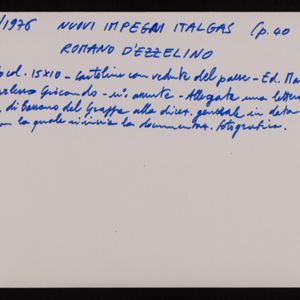 /1976 NUOVI IMPEGNI ITALGAS (p. 40
ROMANO D'EZZELINO
col. 15x10 - Cartolina con vedute del paese - Ed. Ma
Giocondo - n° assente - Allegata una lettera
di Bassano del Grappa alla direz. generale in data
con la quale si invia la documentaz. fotografica.